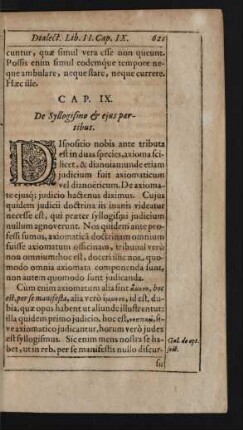 Dialect. Lib. II. Cap. IX. 621
cuntur, quæ simul vera esse non queunt.
Possis enim simul eodemque tempore ne-
que ambulare, neque stare, neque currere.
Hæc ille.
CAP. IX.
De Syllogismo & ejus par-
tibus.
DIspositio nobis ante tributa
est in duas species, axioma sci-
licet, & dianoian: unde etiam
judicium fuit axiomaticum
vel dianoëticum. De axioma-
te ejusq; judicio hactenus diximus. Cujus
quidem judicii doctrina iis inanis videatur
necesse est, qui præter syllogismi judicium
nullum agnoverunt. Nos quidem ante pro-
fessi sumus, axiomatica doctrinam omnium
fuisse axiomatum officinam, tribuisse
non omnium hoc est, docerisse nos, quo-
modo omnia axiomata componenda sunt,
non autem quomodo sunt judicanda.
Cum enim axiomatum alia sint hoc
est, per se manifesta, alia verò id est, du-
bia, quæ opus habent ut aliunde illustrentur:
illa quidem primo judicio, hoc est, si-
ve axiomatico judicantur, horum verò judex
est syllogismus. Sic enim mens nostra se ha-
bet, ut in reb. per se manifestis nullo discur-
su
Gal. de opt.